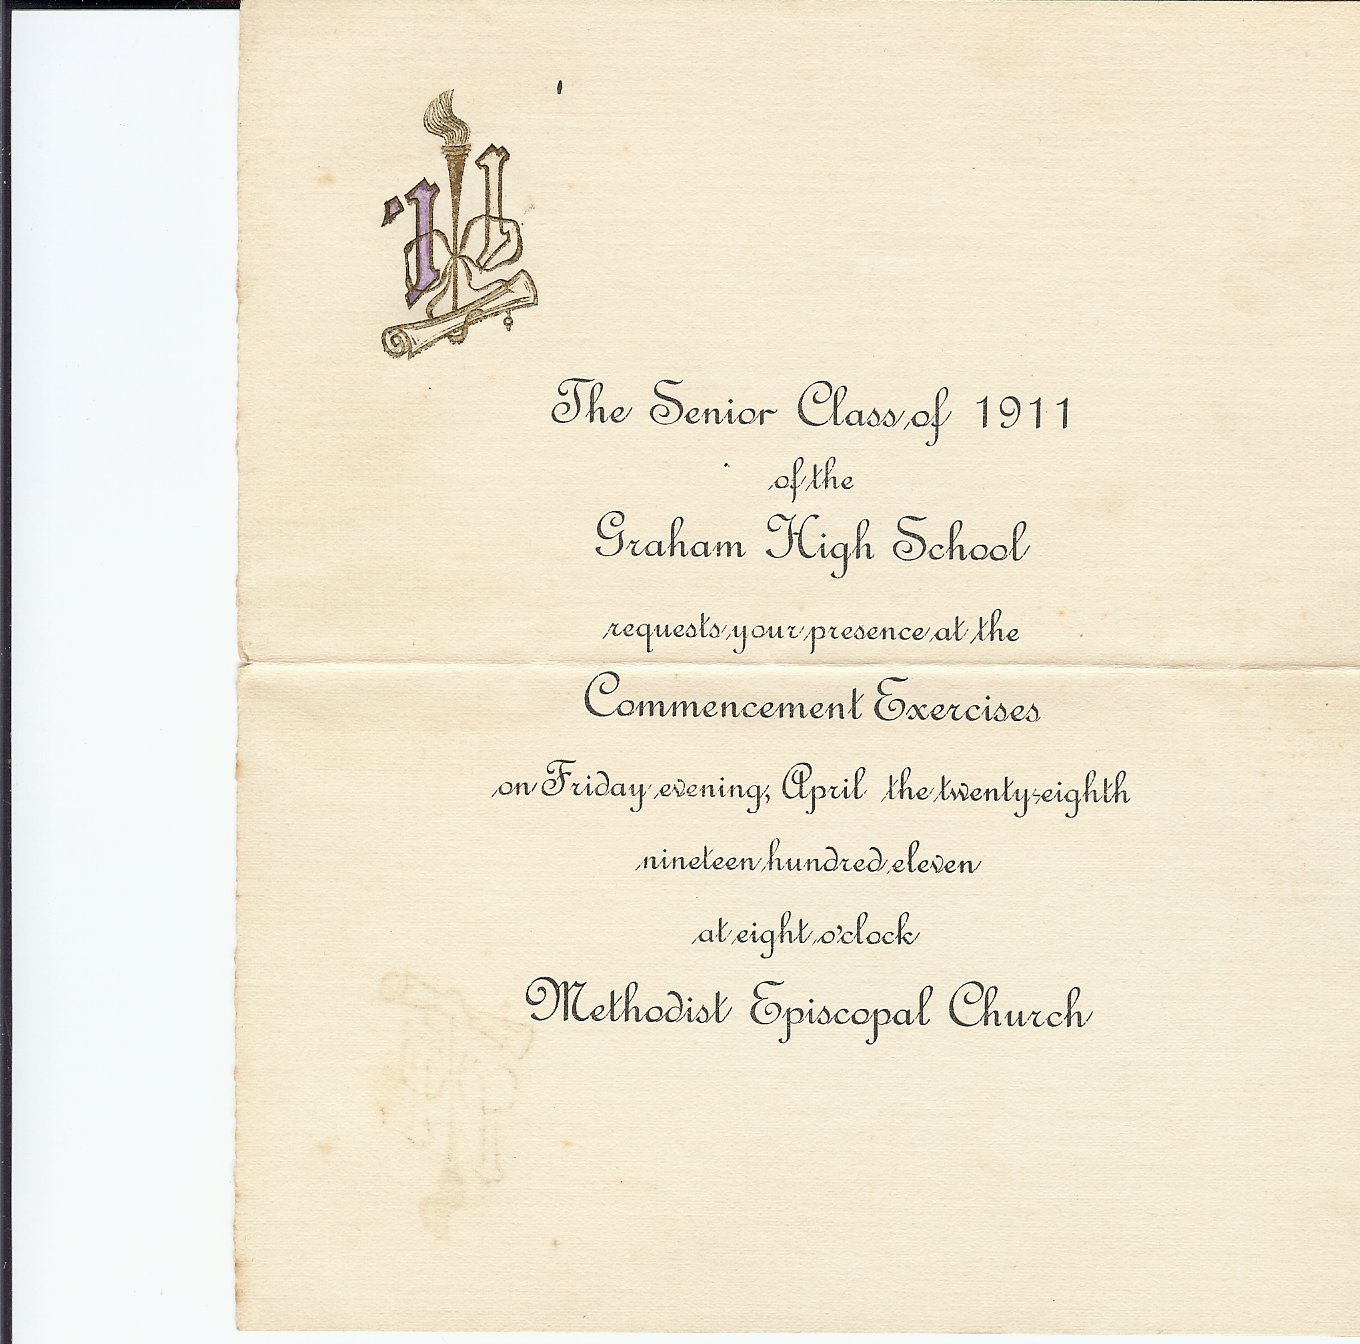 '11
The Senior Class of 1911
of the
Graham High School
requests your presence at the
Commencement Exercises
on Friday evening, April the twenty-eighth
nineteen hundred eleven
at eight o'clock
Methodist Episcopal Church